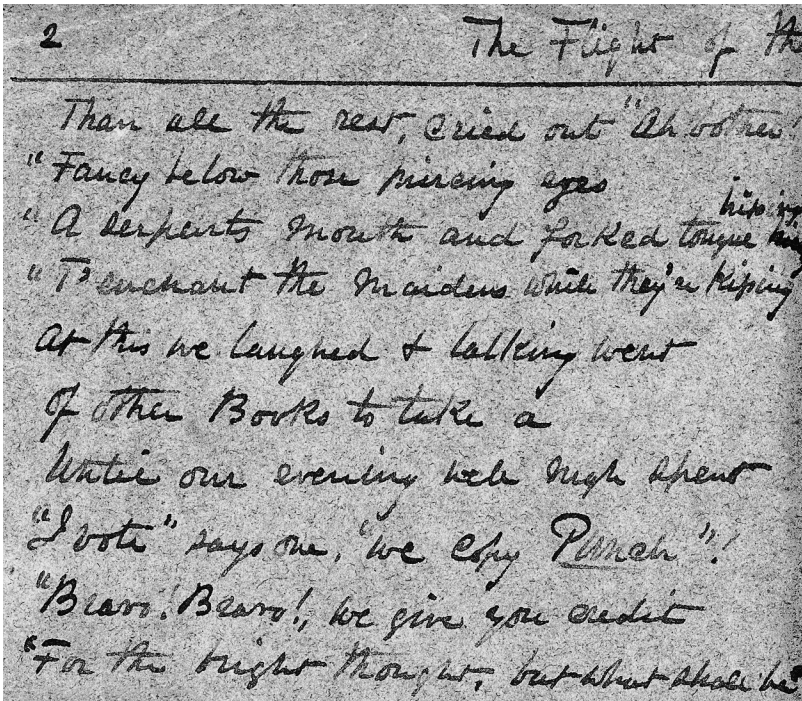 2
The Flight of th
Than all the rest, cried out "Ah bother!
"Fancy below those piercing eyes
hissing
"A serpents mouth and forked tongue
"T'enchant the Maidens while they're kissing
At this we laughed & talking went
Of other Books to take a
Until our evening well nigh spent
"I vote" says one, "we copy Punch"!
"Bravo! Bravo!, we give you credit
"For the bright thought, but what shall be"